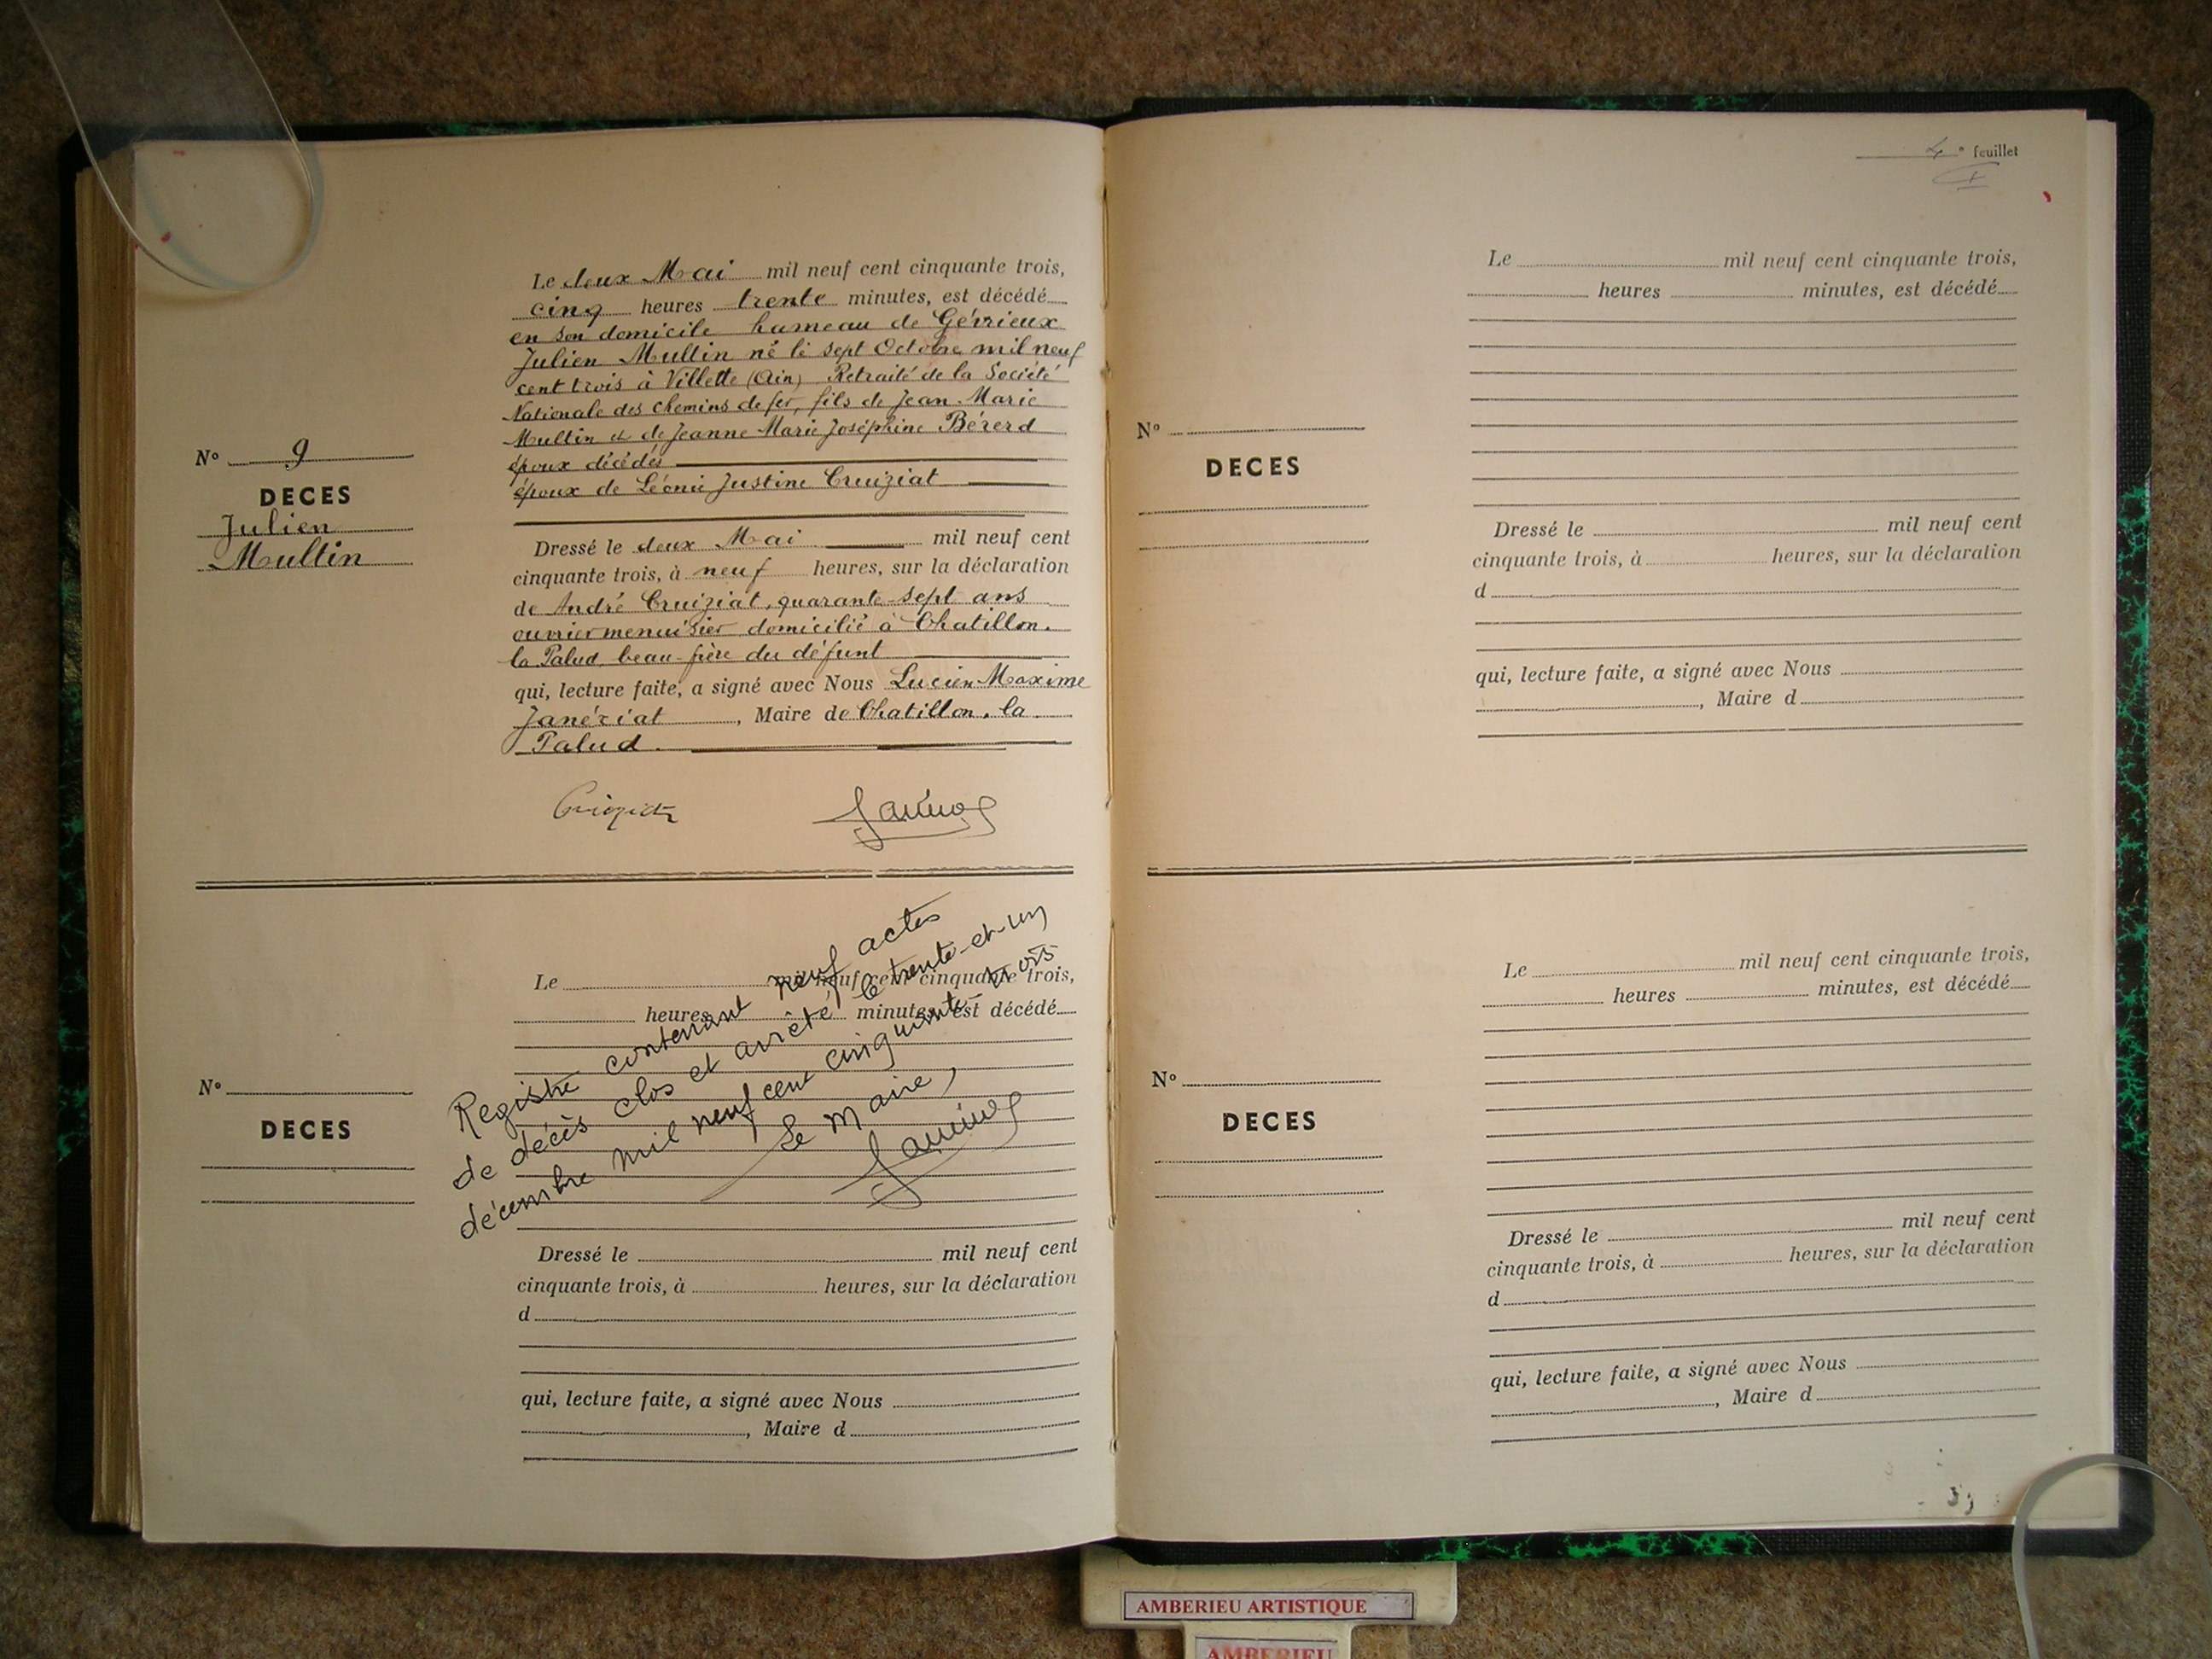 Le deux Mai mil neuf cent cinquante trois,
cinq heures trente minutes, est décédé
en son domicile hameau de Gévrieux
Julien Multin né le sept Octobre mil neuf
cent trois à Villette (Ain) Retraité de la Société
Nationale des chemins de fer, fils de Jean Marie
Multin et de Jeanne Marie Joséphine Bérerd
époux décédés
époux de Léonie Justine Cruiziat
N° 9
DECES
Julien
Multin
Dressé le deux Mai mil neuf cent
cinquante trois, à neuf heures, sur la déclaration
de André Cruiziat, quarante-sept ans
ouvrier menuisier domicilié à Chatillon.
la Palud, beau-frère du défunt
qui, lecture faite, a signé avec Nous Lucien Maxime
Janériat, Maire de Chatillon. la
Palud.
Le mil neuf cent cinquante trois,
heures minutes, est décédé
Registre contenant neuf actes
de décès clos et arrêté le trente-et-un
décembre mil neuf cent cinquante-trois
Le Maire,
N°
DECES
Dressé le mil neuf cent
cinquante trois, à heures, sur la déclaration
d
qui, lecture faite, a signé avec Nous
, Maire d
4e feuillet
Le mil neuf cent cinquante trois,
heures minutes, est décédé
N°
DECES
Dressé le mil neuf cent
cinquante trois, à heures, sur la déclaration
d
qui, lecture faite, a signé avec Nous
, Maire d
Le mil neuf cent cinquante trois,
heures minutes, est décédé
N°
DECES
Dressé le mil neuf cent
cinquante trois, à heures, sur la déclaration
d
qui, lecture faite, a signé avec Nous
, Maire d
AMBERIEU ARTISTIQUE
AMBERIEU